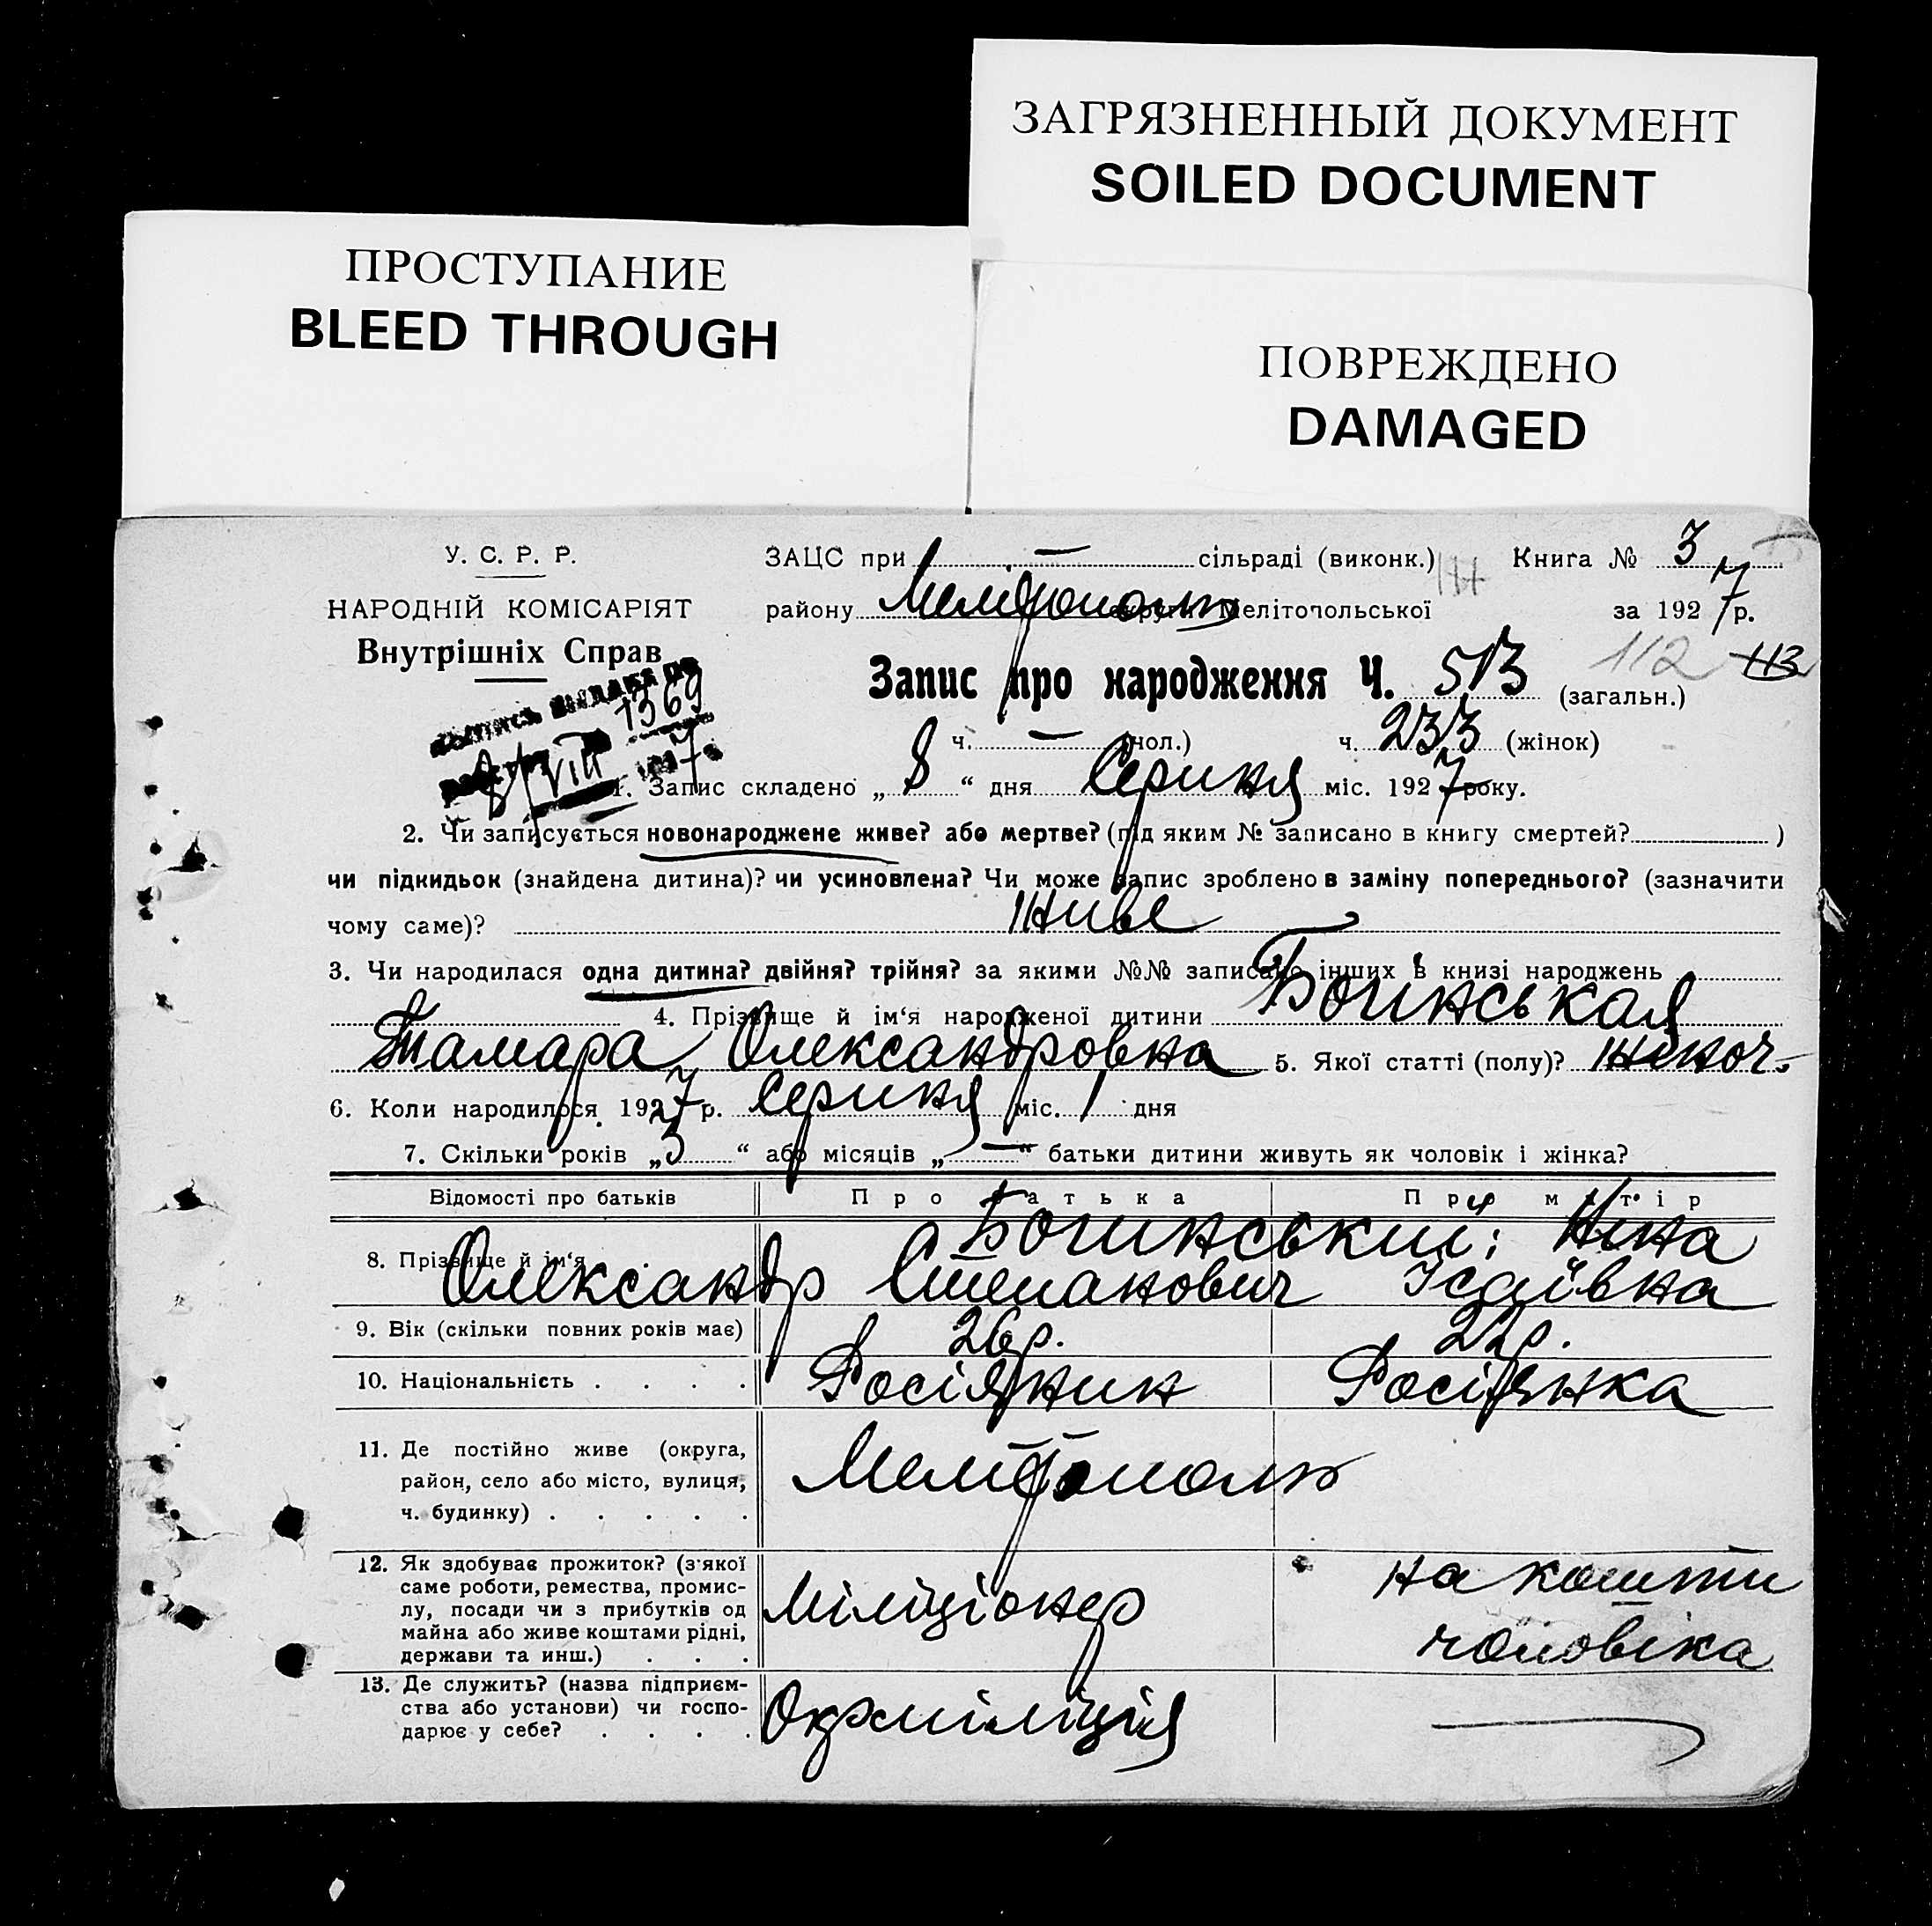 ЗАГРЯЗНЕННЫЙ ДОКУМЕНТ
SOILED DOCUMENT
ПРОСТУПАНИЕ
BLEED THROUGH
ПОВРЕЖДЕНО
DAMAGED
У. С. Р. Р.
НАРОДНІЙ КОМІСАРІЯТ
Внутрішніх Справ
ЗАЦС при — сільраді (виконк.) Книга № 3
району Мелітополь округи Мелітопольської за 1927 р.
Запис про народження Ч. 513 (загальн.) 112 113
1369
8/VIII 1927
ч. — (чол.) ч. 233 (жінок)
1. Запис складено „ 8 “ дня Серпня міс. 1927 року.
2. Чи записується новонароджене живе? або мертве? (під яким № записано в книгу смертей? )
чи підкидьок (знайдена дитина)? чи усиновлена? Чи може запис зроблено в заміну попереднього? (зазначити
чому саме)? Живе
3. Чи народилася одна дитина? двійня? трійня? за якими №№ записано інших в книзі народжень
4. Прізвище й ім‘я народженої дитини
Тамара Олександровна 5. Якої статті (полу)? жіноч.
6. Коли народилося 1927 р. Серпня міс. 1 дня
7. Скільки років „ 3 “ або місяців „ — “ батьки дитини живуть як чоловік і жінка?
Відомості про батьків Про батька Про матір
8. Прізвище й ім‘я Ніна
Олександр Степанович Ісаївна
9. Вік (скільки повних років має) 26 р. 22 р.
10. Національність . . . . Росіянин Росіянка
11. Де постійно живе (округа,
район, село або місто, вулиця,
ч. будинку) . . . . .
Мелітополь
12. Як здобуває прожиток? (з якої
саме роботи, ремества, промис-
лу, посади чи з прибутків од
майна або живе коштами рідні,
держави та инш.) . . .
Міліціонер
на кошти
чоловіка
13. Де служить? (назва підприєм-
ства або установи) чи госпо-
дарює у себе? . . . .
Окрміліція